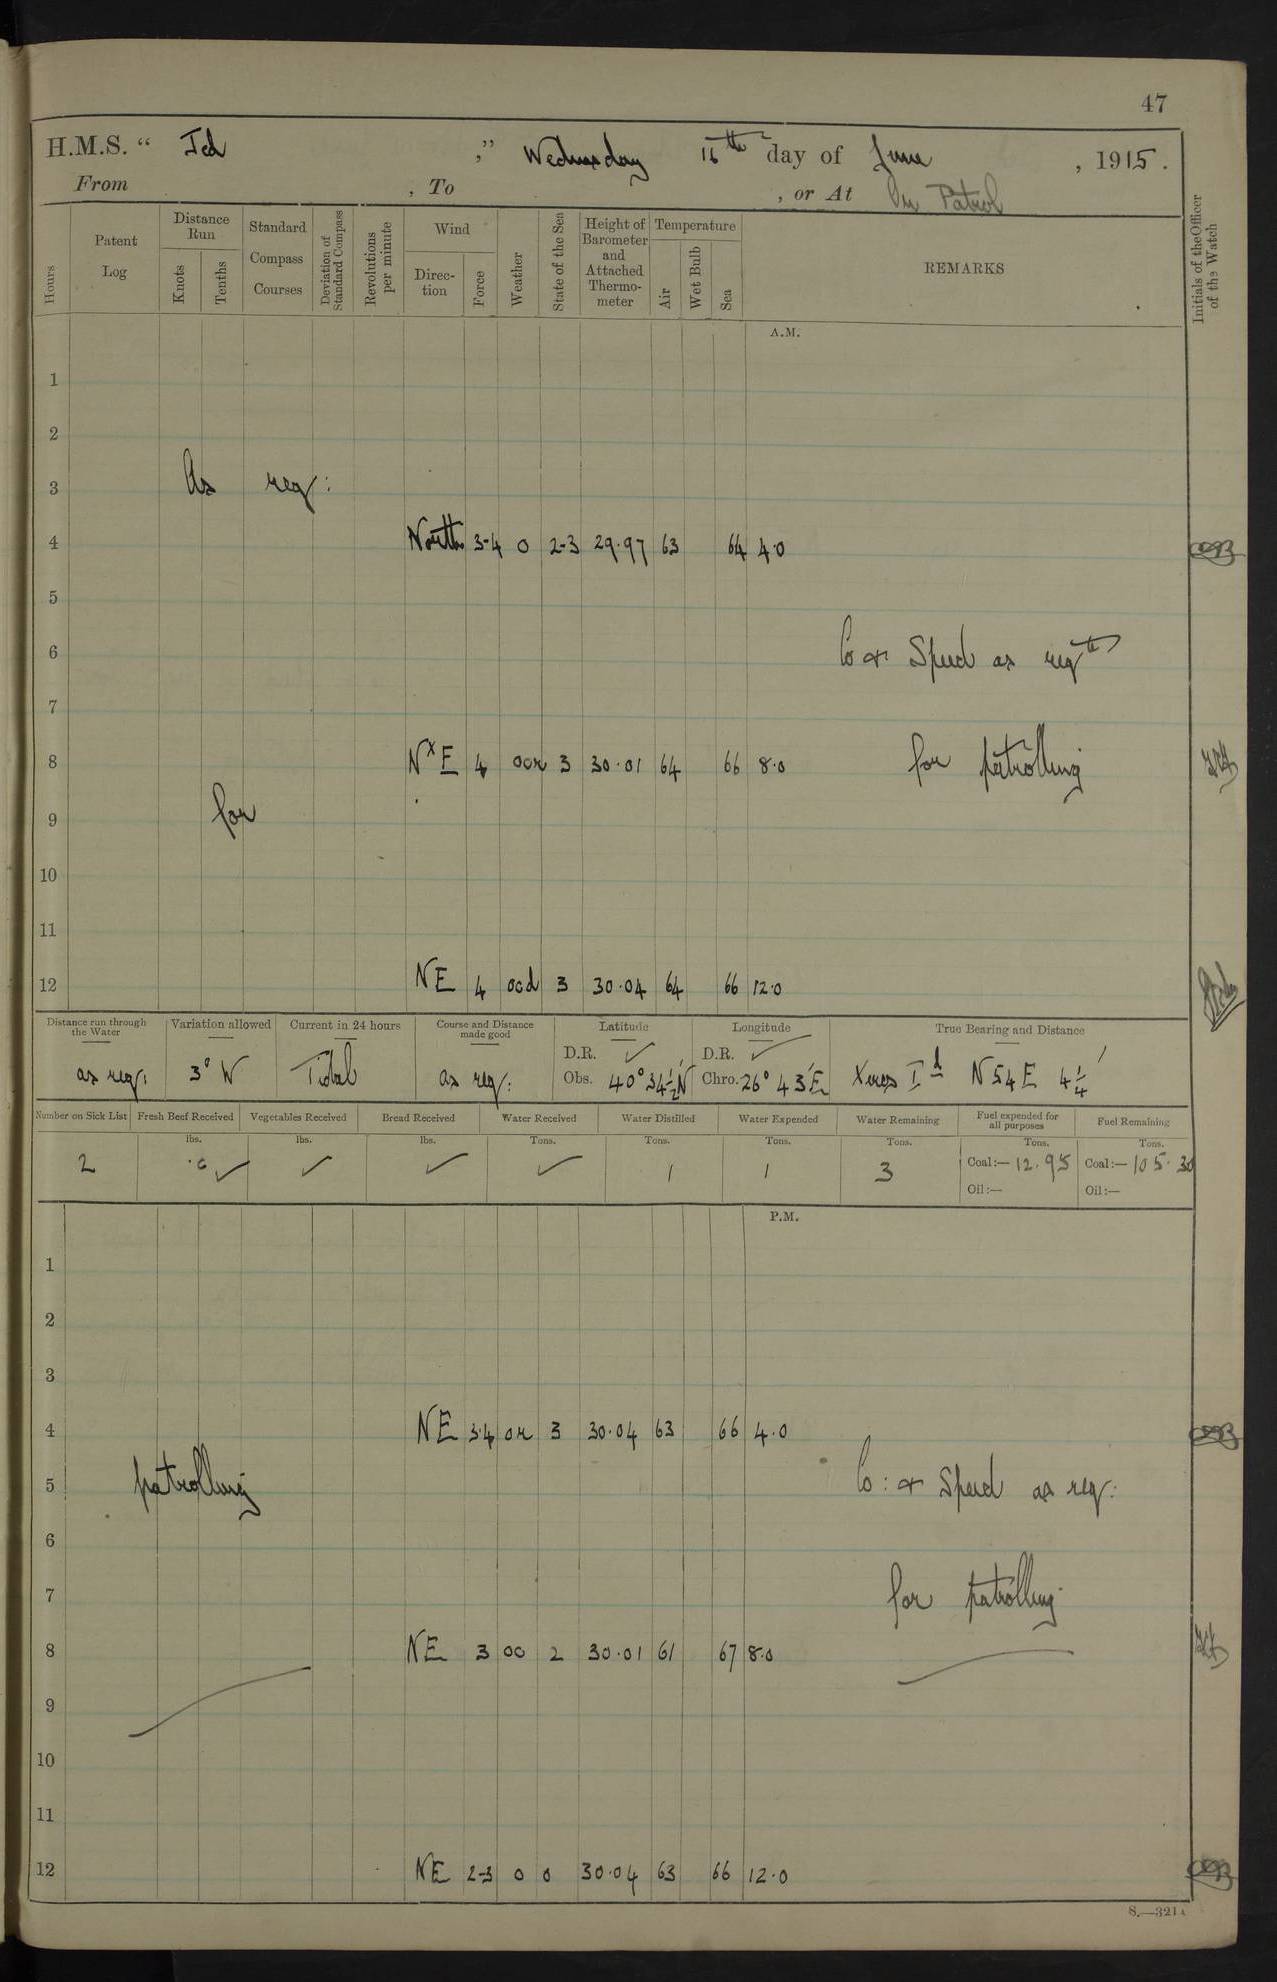 47
H.M.S. “ Jed ,” Wednesday 16th day of June , 1915.
From , To , or At On Patrol
Hours
Patent Log
Distance Run
Knots
Tenths
Standard Compass Courses
Deviation of Standard Compass
Revolutions per minute
Wind
Direction
Force
Weather
State of the Sea
Height of Barometer and Attached Thermometer
Temperature
Air
Wet Bulb
Sea
REMARKS
Initials of the Officer of the Watch
A.M.
1
2
3 As req:
4 North 3-4 o 2-3 29.97 63 64 4.0
5
6 Co & Speed as reqte
7
8 NxE 4 ocr 3 30.01 64 66 8.0 for patrolling
9 for
10
11
12 NE 4 ocd 3 30.04 64 66 12.0
Distance run through the Water
as req:
Variation allowed
3° W
Current in 24 hours
Tidal
Course and Distance made good
as req:
Latitude
D.R. ✓
Obs. 40° 34½' N
Longitude
D.R. ✓
Chro. 26° 43' E
True Bearing and Distance
Xeros Id N 54 E 4¼'
Number on Sick List
2
Fresh Beef Received
lbs.
✓
Vegetables Received
lbs.
✓
Bread Received
lbs.
✓
Water Received
Tons.
✓
Water Distilled
Tons.
1
Water Expended
Tons.
1
Water Remaining
Tons.
3
Fuel expended for all purposes
Tons.
Coal:— 12.95
Oil:—
Fuel Remaining
Tons.
Coal:— 105.30
Oil:—
P.M.
1
2
3
4 NE 3.4 or 3 30.04 63 66 4.0
5 patrolling Co: & Speed as req:
6
7 for patrolling
8 NE 3 oc 2 30.01 61 67 8.0
9
10
11
12 NE 2-3 o o 30.04 63 66 12.0
S.—321A